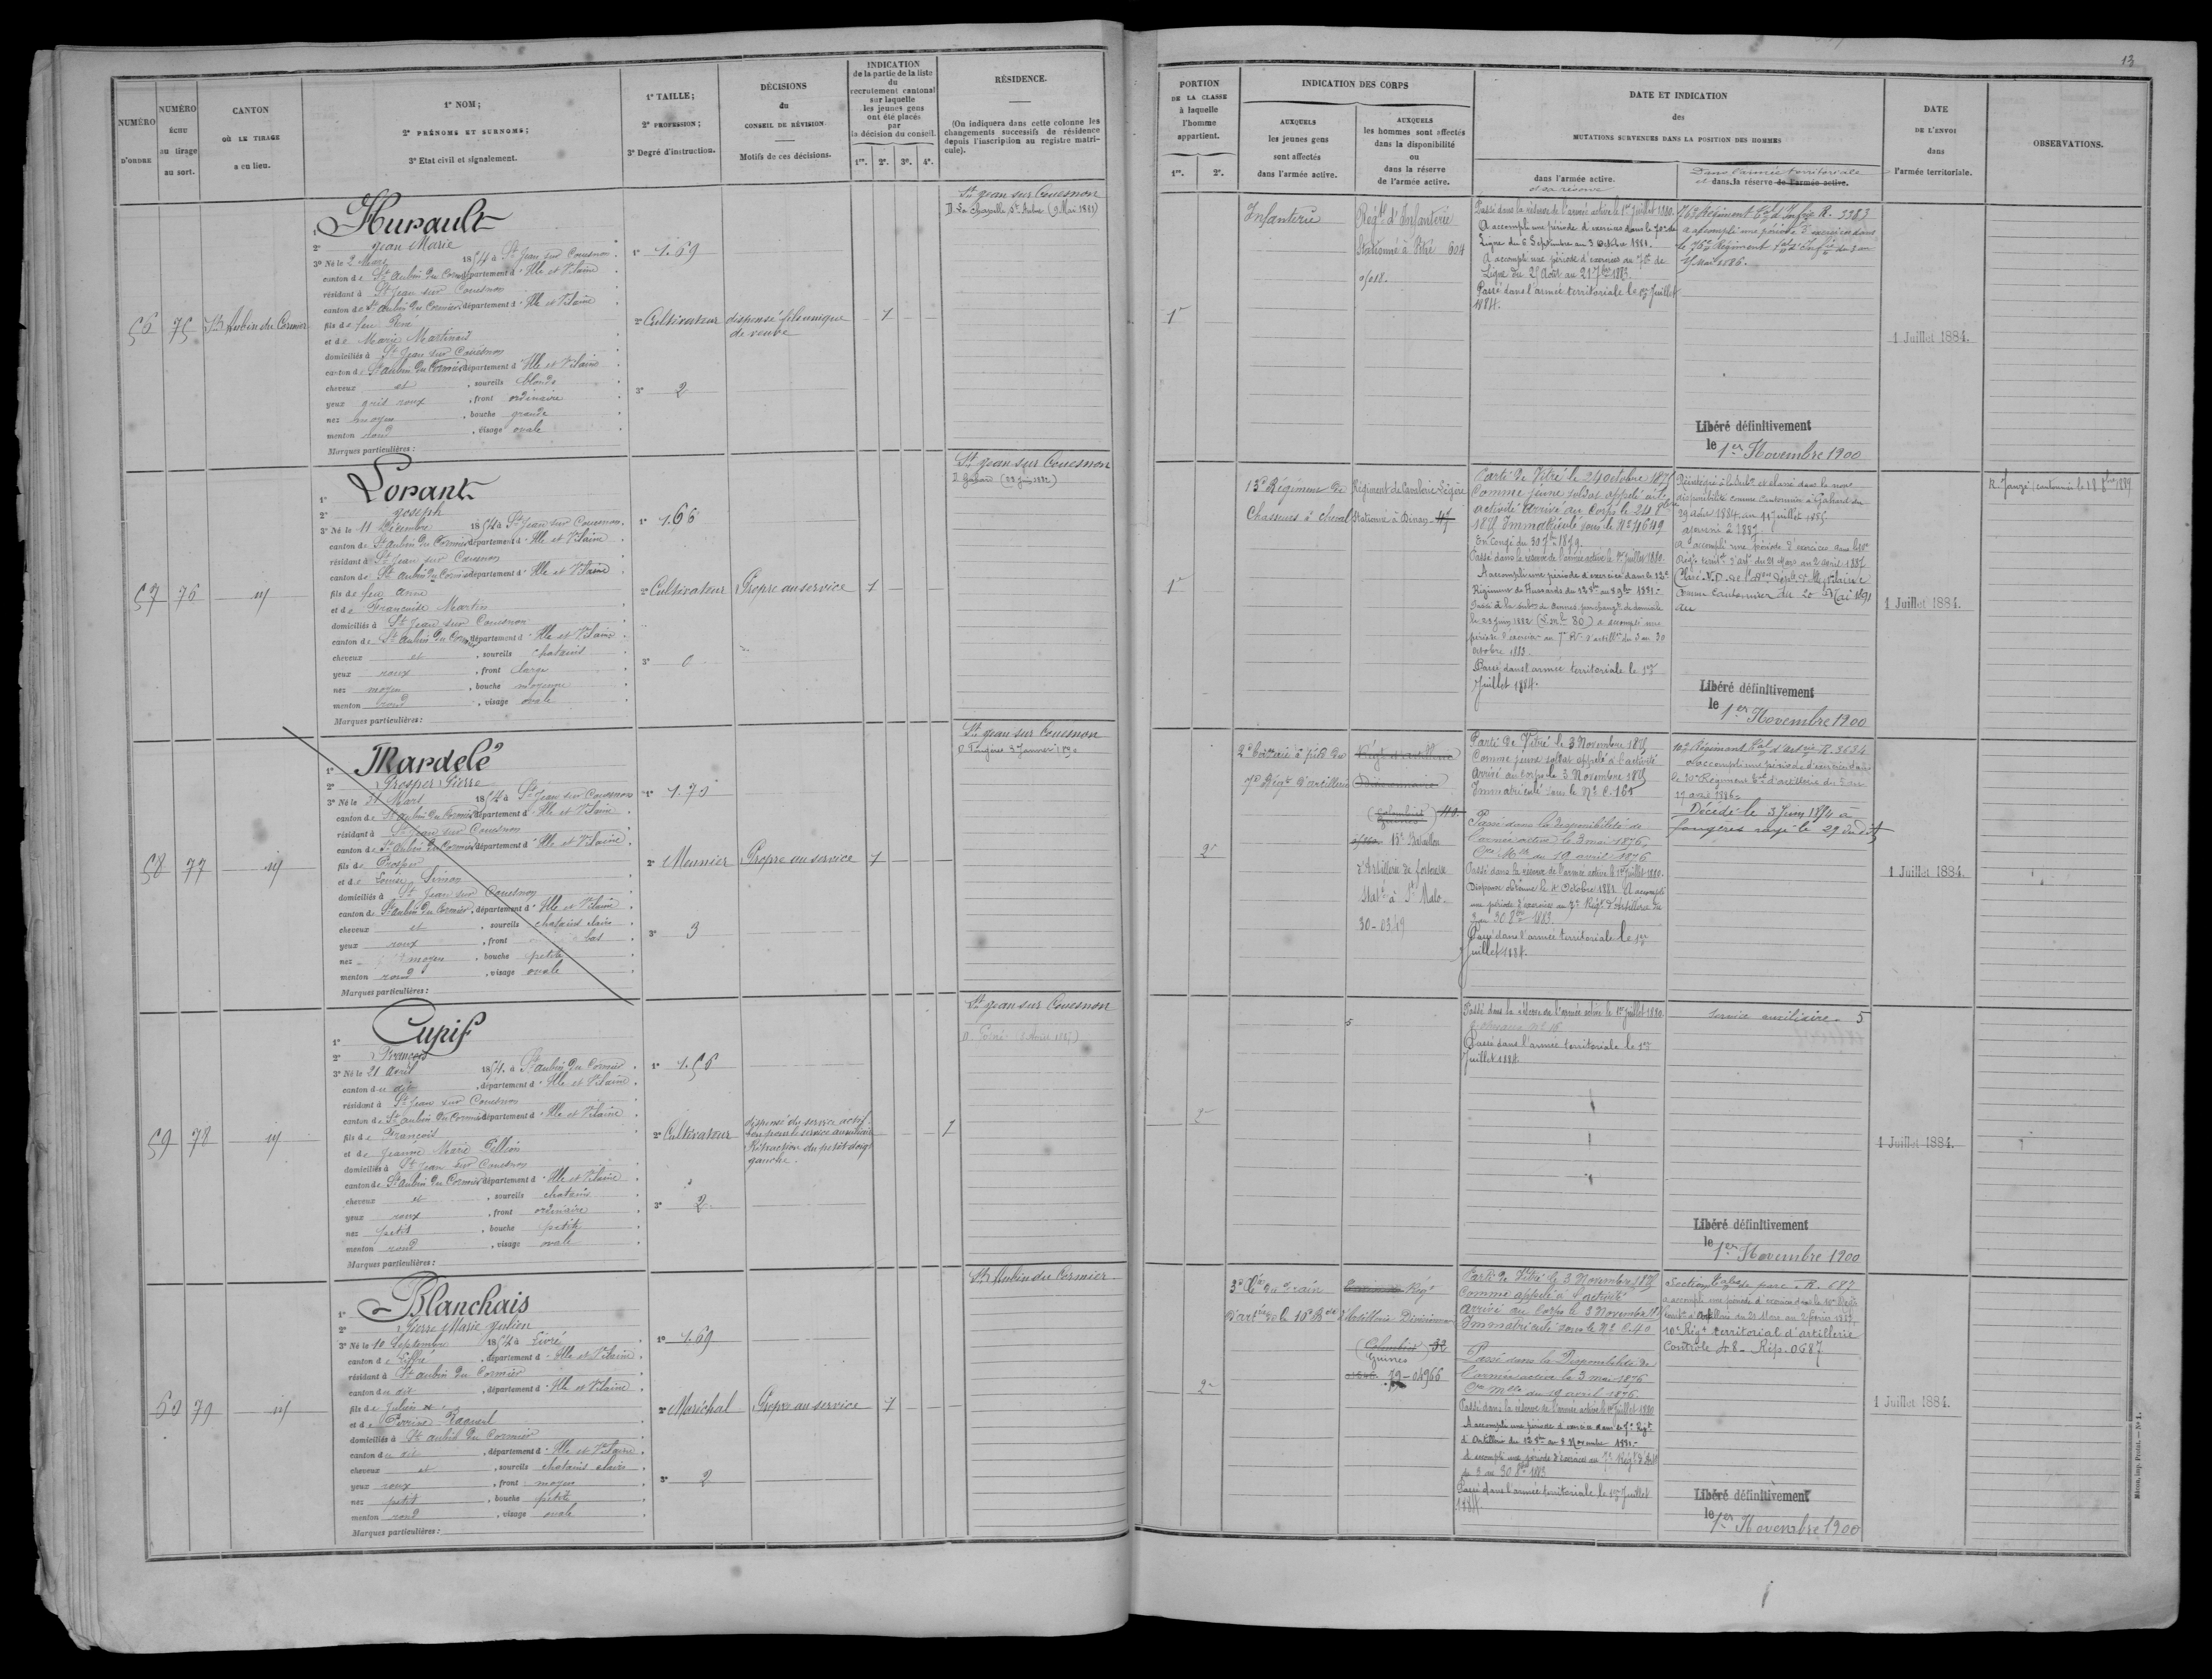 NUMÉRO
D'ORDRE
NUMÉRO
ÉCHU
au tirage
au sort.
CANTON
OÙ LE TIRAGE
a eu lieu.
1° NOM;
2° PRÉNOMS ET SURNOMS;
3° Etat civil et signalement.
1° TAILLE;
2° PROFESSION;
3° Degré d'instruction.
DÉCISIONS
du
CONSEIL DE RÉVISION
Motifs de ces décisions.
INDICATION
de la partie de la liste
du
recrutement cantonal
sur laquelle
les jeunes gens
ont été placés
par
la décision du conseil.
1re. 2e. 3e. 4e.
RÉSIDENCE.
(On indiquera dans cette colonne les
changements successifs de résidence
depuis l'inscription au registre matri-
cule).
56 75 St Aubin du Cormier
1° Hurault
2° Jean Marie
3° Né le 2 Mars 1854 à St Jean sur Couesnon
canton de St Aubin du Cormier département d'Ille et Vilaine
résidant à St Jean sur Couesnon
canton de St Aubin du Cormier département d'Ille et Vilaine
fils de feu René
et de Marie Martinais
domiciliés à St Jean sur Couesnon
canton de St Aubin du Cormier département d'Ille et Vilaine
cheveux et sourcils blonds
yeux gris roux, front ordinaire
nez moyen, bouche grande
menton rond, visage ovale
Marques particulières:
1° 1.69
2° Cultivateur
3° 2
dispensé fils unique
de veuve
1
St Jean sur Couesnon
D. La Chapelle St Aubert (9 Mai 1883)
57 76 id
1° Lorant
2° Joseph
3° Né le 11 Décembre 1854 à St Jean sur Couesnon
canton de St Aubin du Cormier département d'Ille et Vilaine
résidant à St Jean sur Couesnon
canton de St Aubin du Cormier département d'Ille et Vilaine
fils de feu
et de Françoise Martin
domiciliés à St Jean sur Couesnon
canton de St Aubin du Cormier département d'Ille et Vilaine
cheveux et sourcils chatains
yeux roux, front large
nez moyen, bouche moyenne
menton rond, visage ovale
Marques particulières:
1° 1.66
2° Cultivateur
3° 0
Propre au service
1
St Jean sur Couesnon
D. Gahard (23 Juin 1882)
58 77 id
1° Mardelé
2° Prosper Pierre
3° Né le 31 Mars 1854 à St Jean sur Couesnon
canton de St Aubin du Cormier département d'Ille et Vilaine
résidant à St Jean sur Couesnon
canton de St Aubin du Cormier département d'Ille et Vilaine
fils de Prosper
et de Louise Simon
domiciliés à St Jean sur Couesnon
canton de St Aubin du Cormier, département d'Ille et Vilaine
cheveux et sourcils chatains clairs
yeux roux, front bas
nez moyen, bouche petite
menton rond, visage ovale
Marques particulières:
1° 1.70
2° Meunier
3° 3
Propre au service
1
St Jean sur Couesnon
D. Fougères 3 Janvier
59 78 id
1° Cupif
2° François
3° Né le 21 avril 1854 à St Aubin du Cormier
canton du dit, département d'Ille et Vilaine
résidant à St Jean sur Couesnon
canton de St Aubin du Cormier département d'Ille et Vilaine
fils de François
et de Jeanne Marie Pellion
domiciliés à St Jean sur Couesnon
canton de St Aubin du Cormier département d'Ille et Vilaine
cheveux et sourcils chatains
yeux roux, front ordinaire
nez petit, bouche petite
menton rond, visage ovale
Marques particulières:
1° 1.56
2° Cultivateur
3° 2
dispensé du service actif
bon pour le service auxiliaire
Rétraction du petit doigt
gauche.
1
St Jean sur Couesnon
60 79 id
1° Blanchais
2° Pierre Marie Julien
3° Né le 10 Septembre 1854 à Livré
canton de Liffré, département d'Ille et Vilaine
résidant à St Aubin du Cormier
canton du dit, département d'Ille et Vilaine
fils de Julien
et de Perrine
domiciliés à St Aubin du Cormier
canton du dit, département d'Ille et Vilaine
cheveux et sourcils chatains clairs
yeux roux, front moyen
nez petit, bouche petite
menton rond, visage ovale
Marques particulières:
1° 1.69
2° Maréchal
3° 2
Propre au service
1
St Aubin du Cormier
13
PORTION
DE LA CLASSE
à laquelle
l'homme
appartient.
1re. 2e.
INDICATION DES CORPS
AUXQUELS
les jeunes gens
sont affectés
dans l'armée active.
AUXQUELS
les hommes sont affectés
dans la disponibilité
ou
dans la réserve
de l'armée active.
DATE ET INDICATION
des
MUTATIONS SURVENUES DANS LA POSITION DES HOMMES
dans l'armée active.
et sa réserve
Dans l'armée territoriale
et dans la réserve de l'armée active.
DATE
DE L'ENVOI
dans
l'armée territoriale.
OBSERVATIONS.
1re
Infanterie
Régt d'Infanterie
Stationné à Vitré 604
Passé dans la réserve de l'armée active le 1er Juillet 1880.
A accompli une période d'exercices dans le 70e de
Ligne du 6 Septembre au 3 Octobre 1881.
A accompli une période d'exercices au 70e de
Ligne du 25 Août au 21 7bre 1883.
Passé dans l'armée territoriale le 1er Juillet
1884.
76e Régiment tal d'Infrie R. 3383
a accompli une période d'exercices dans
le 76e Régiment
Mai 1886.
Libéré définitivement
le 1er Novembre 1900
1 Juillet 1884.
1re
13e Régiment de
Chasseurs à cheval
Régiment de Cavalerie Légère
Stationné à Dinan 47
Parti de Vitré le 24 octobre 1875
Comme jeune soldat appelé à l'
activité Arrivé au Corps le 24 8bre
1875 Immatriculé sous le No 4649
En congé du 30 7bre 1879.
Passé dans la réserve de l'armée active le 1er Juillet 1880.
A accompli une période d'exercices dans le 12e
Régiment de Hussards du 12 8bre au 8 9bre 1881.
Passé à la subon de Rennes par changt de domicile
le 23 Juin 1882 A accompli une
période d'exercices au 7e Rt d'artillie du 3 au 30
octobre 1883.
Passé dans l'armée territoriale le 1er
Juillet 1884.
disponibilité comme Cantonnier à Gahard du
29 août 1884 au 11 Juillet 1885.
A accompli une période d'exercices dans le 10e
Régt territ d'Artie du 21 Mars au 2 avril 1887
Comme Cantonnier du 20 Mai 1891
au
Libéré définitivement
le 1er Novembre 1900
1 Juillet 1884.
2e
2e Batterie à pied du
7e Régt d'artillerie
Divisionnaire
15e Bataillon
d'Artillerie de forteresse
Statné à St Malo.
30-0349
Parti de Vitré le 3 Novembre 1875
Comme jeune soldat appelé à l'activité
Arrivé au Corps le 3 Novembre 1875
Immatriculé sous le No C.165
Passé dans la disponibilité de
l'armée active le 3 mai 1876,
Cre Mlle du 19 avril 1876
Passé dans la réserve de l'armée active le 1er Juillet 1880.
Dispense obtenue le 4 Octobre 1881. A accompli
une période d'exercices au 7e Régt d'Artillerie du
3 au 30 8bre 1883
Passé dans l'armée territoriale le 1er
Juillet 1884.
10e Régiment tal d'artrie R. 3634
A accompli une période d'exercices dans
le 10e Régiment tal d'artillerie du
17 avril 1886.
Décédé le 3 Juin 1894 à
fougères rayé le 29 du dit
1 Juillet 1884.
2e
5
Passé dans la réserve de l'armée active le 1er Juillet 1880.
Passé dans l'armée territoriale le 1er
Juillet 1884
Service auxiliaire. 5
Libéré définitivement
le 1er Novembre 1900
1 Juillet 1884.
2e
3e Cie du Train
d'artrie de la 10e Bde
Régt
d'Artillerie Divisionnaire
(Colombier) 32
Guines
79-01966
Parti de Vitré le 3 Novembre 1875
Comme appelé à l'activité
Arrivé au Corps le 3 Novembre 1875
Immatriculé sous le No C.40
Passé dans la Disponibilité de
l'armée active le 3 mai 1876
Cre Mlle du 19 avril 1876.
Passé dans la réserve de l'armée active le 1er Juillet 1880
A accompli une période d'exercices dans le 7e Régt
d'Artillerie du 12 8bre au 8 Novembre 1881.
A accompli une période d'exercices au 7e Régt d'Artie
du 3 au 30 8bre 1883
Passé dans l'armée territoriale le 1er Juillet
1884
Section tale de parc - R. 687
10e Régt territorial d'artillerie
Contrôle 48 - Rép. 0687
Libéré définitivement
le 1er Novembre 1900
1 Juillet 1884.